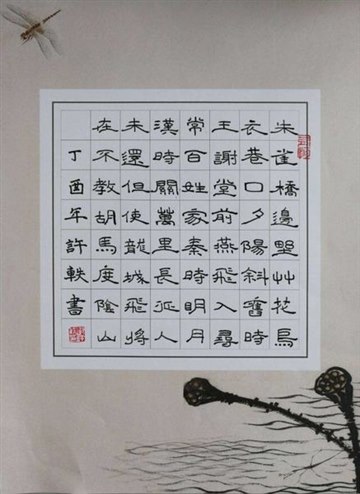 朱雀橋邊野艸花烏
衣巷口夕陽斜舊時
王謝堂前燕飛入尋
常百姓家秦時明月
漢時關萬里長征人
未還但使龍城飛將
在不教胡馬度陰山
丁酉年許軼書